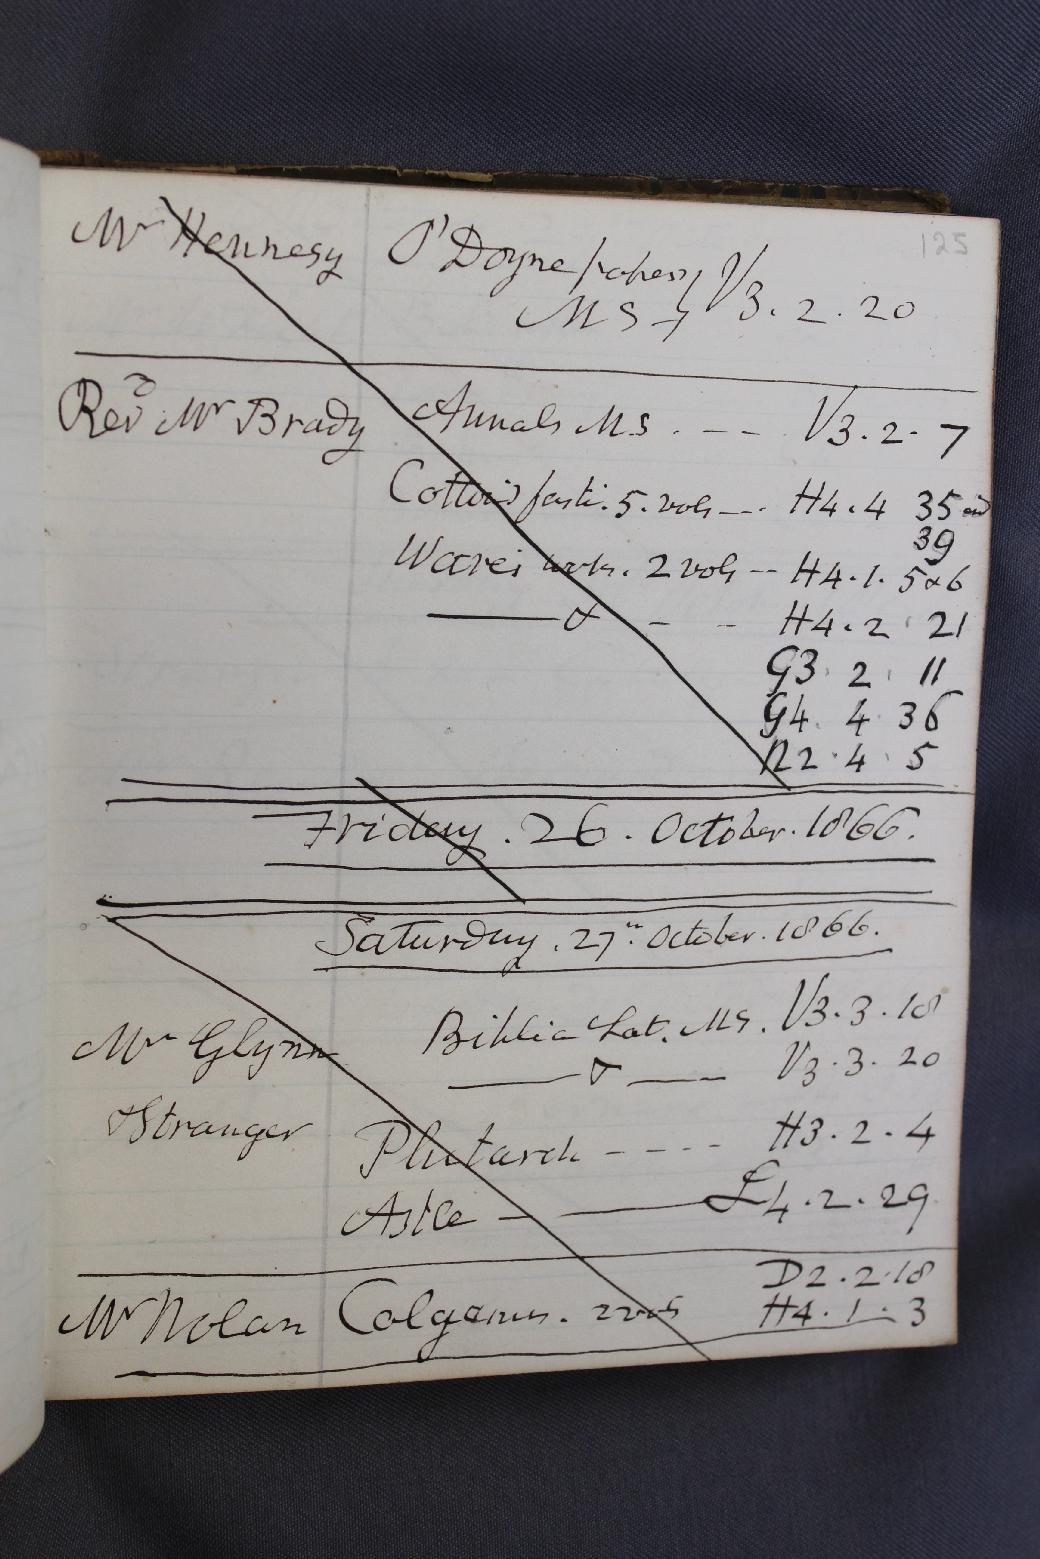 125
Mr Hennesy O'Doyne papers V3.2.20
MS
Revd Mr Brady Annals MS. - - - V3.2.7
Cotton's fasti. 5. vols - - H4.4 35 and
39
Wares works. 2 vols -- H4.1.5&6
——— & - - H4.2 21
G3 2 11
G4. 4 36
R2.4.5
Friday. 26. October. 1866.
Saturday. 27th. October. 1866.
Mr Glynn Biblia Lat. MS. V3.3.18
——— & ——— V3.3.20
& Stranger
Plutarch - - - - H3.2.4
Astle — ——— L4.2.29
D2.2.18
Mr Nolan Colganus. 2 vols H4.1.3